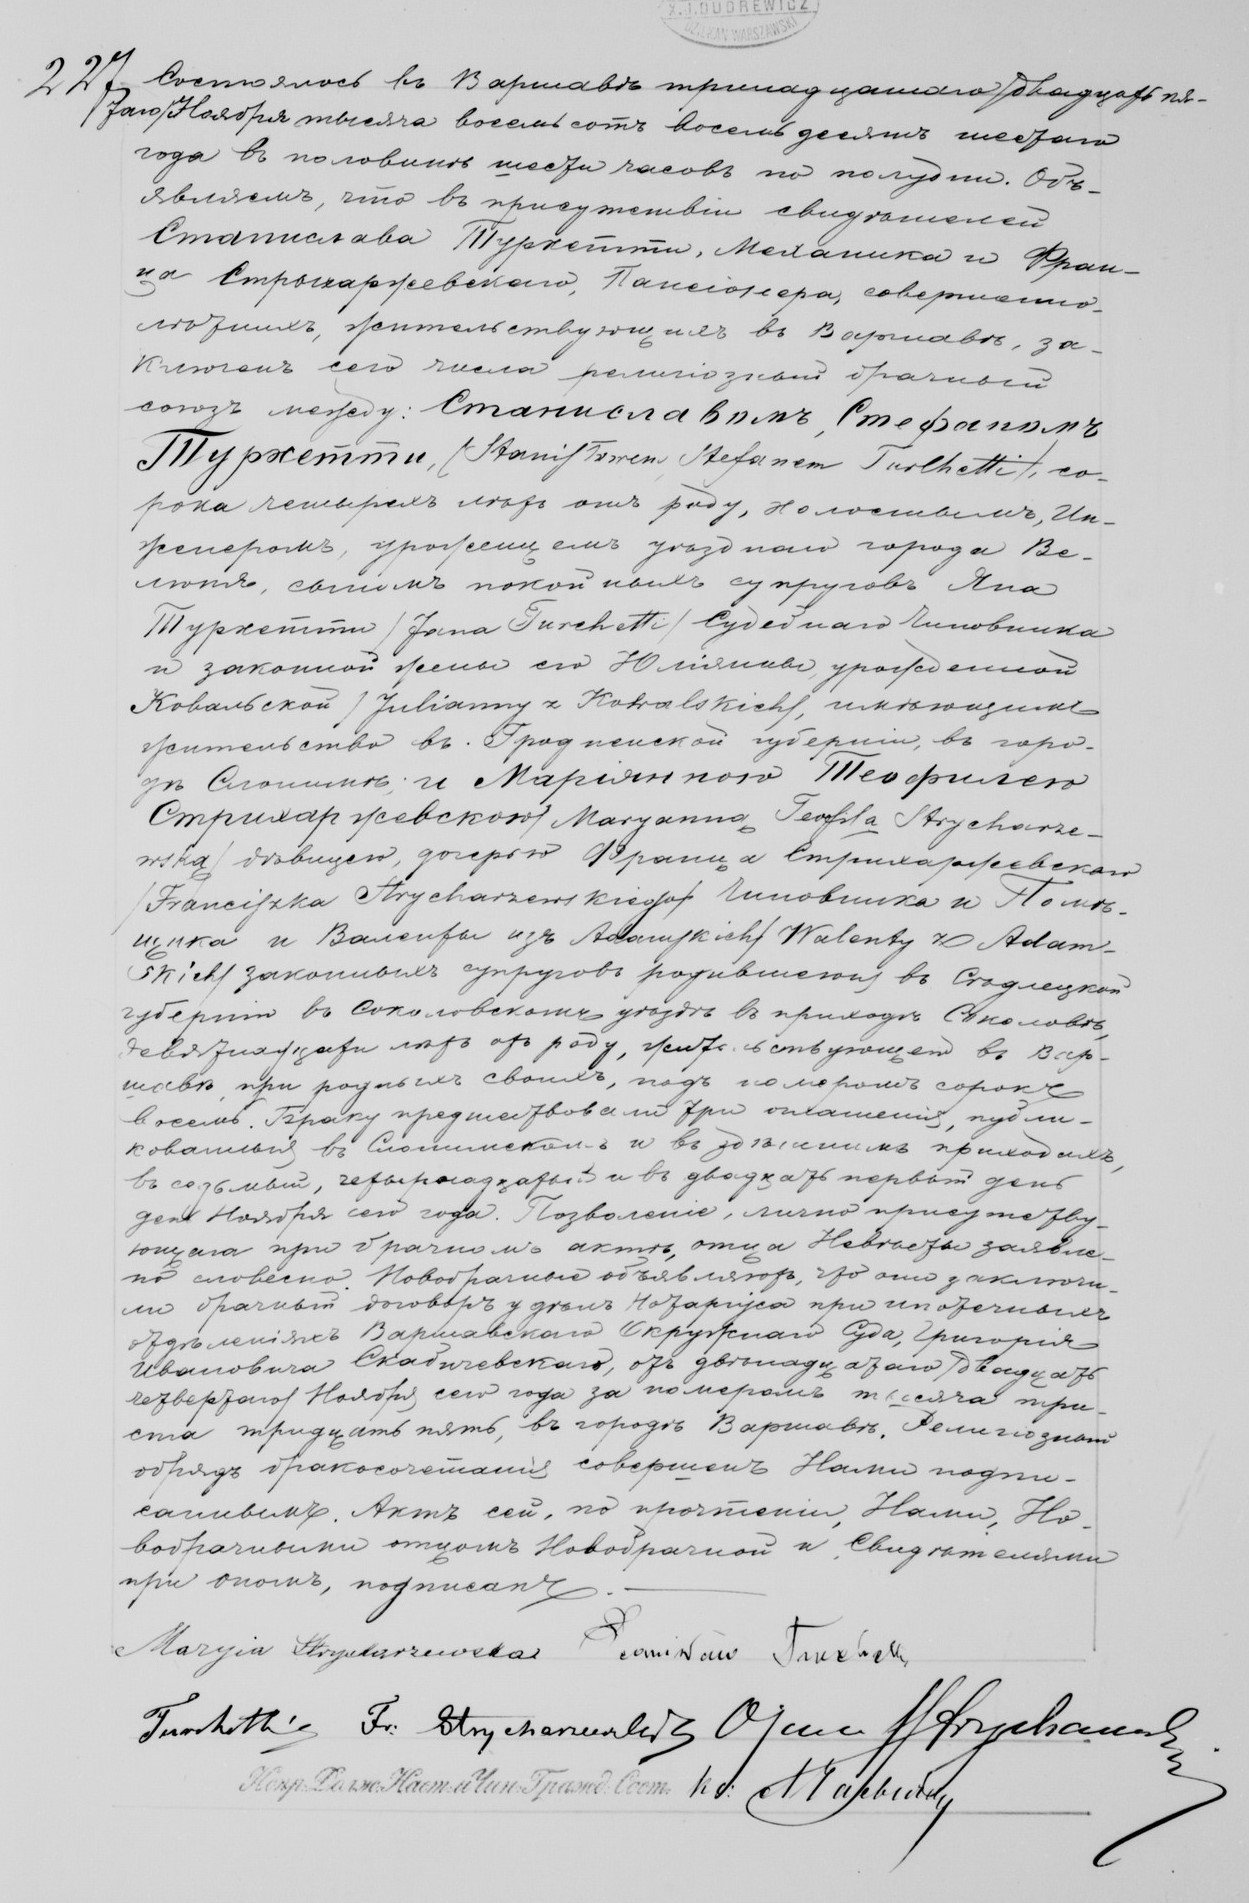 X.J.DUDREWICZ
DZIEKAN WARSZAWSKI
227
Состоялось въ Варшавѣ тринадцатаго/двадцать пя-
таго/Ноября тысяча восемьсотъ восемьдесятъ шестаго
года въ половинѣ шести часовъ по полудни. Объ-
являемъ, что въ присутствіи свидѣтелей
Станислава Туркетти, Механика и Фран-
ца Стрыхаржевскаго, Пансіонера, совершенно-
лѣтнихъ, жительствующихъ въ Варшавѣ, за-
ключенъ сего числа религіозный брачный
союзъ между: Станиславомъ, Стефаномъ
Туркетти, (Stanisławem, Stefanem Turchetti), со-
рока четырехъ лѣтъ отъ роду, холостымъ, Ин-
женеромъ, урожденцемъ уѣзднаго города Ве-
люня, сыномъ покойныхъ супруговъ Яна
Туркетти /Jana Turchetti/ Судебнаго Чиновника
и законной жены его Юліянны, урожденной
Ковальской /Julianny z Kowalskich/, имѣющимъ
жительство въ Гродненской губерніи, въ горо-
дѣ Слонимѣ; и Маріянною Теофилею
Стрихаржевскою/ Maryanną Teofilą Strycharze-
wską/ дѣвицею, дочерью Франца Стрихаржевскаго
/Franciszka Strycharzewskiego/ Чиновника и Помѣ-
щика и Валенты изъ Adamskich/ Walenty z Adam-
skich/ законныхъ супруговъ родившеюся въ Сѣдлецкой
губерніи въ Соколовскомъ уѣздѣ въ приходѣ Соколовѣ,
девятнадцати лѣтъ отъ роду, жительствующей въ Вар-
шавѣ, при родныхъ своихъ, подъ номеромъ сорокъ
восемь. Браку предшествовали три оглашенія, публи-
кованныя въ Слонимскомъ и въ здѣшнимъ приходахъ,
въ седьмый, четырнадцатый и въ двадцать первый день
день Ноября сего года. Позволеніе, лично присутству-
ющаго при брачномъ актѣ, отца Невѣсты заявле-
но словесно. Новобрачные объявляютъ, что они заключи-
ли брачный договоръ у дѣлъ Нотаріуса при ипотечныхъ
отдѣленіяхъ Варшавскаго Окружнаго Суда, Григорія
Ивановича Скабичевскаго, отъ двѣнадцатаго/двадцать
четвертаго/ Ноября сего года за номеромъ тысяча три-
ста тридцать пять, въ городѣ Варшавѣ. Религіозный
обрядъ бракосочетанія совершенъ Нами подпи-
саннымъ. Актъ сей, по прочтеніи, Нами, Но-
вобрачными отцомъ Новобрачной и Свидѣтелями
при ономъ, подписанъ.
Maryia Strycharzewska Stanisław Turchetti
Turchetti Fr: Strycharzewski Ojciec
Испр. Должн. Наст. и Чин. Гражд. Сост. Кс: